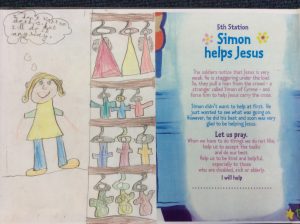 5th Station
Simon
helps Jesus
The soldiers notice that Jesus is very
weak. He is staggering under the load.
So, they pull a man from the crowd - a
stranger called Simon of Cyrene - and
force him to help Jesus carry the cross.
Simon didn't want to help at first. He
just wanted to see what was going on.
However, he did his best and soon was very
glad to be helping Jesus.
Let us pray.
When we have to do things we do not like
help us to accept the tasks
and do our best.
Help us to be kind and helpful,
especially to those
who are disabled, sick or elderly.
I will help